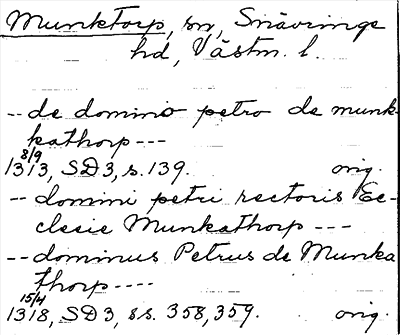 Munktorp, sn, Snävringe
hd, Västm. l.
-- de domino petro de munk-
kathorp ---
8/9
1313, SD3, s. 139. orig.
-- domini petri rectoris Ec-
clesie Munkathorp ---
-- dominus Petrus de Munka
thorp ----
15/4
1318, SD3, ss. 358, 359. orig.